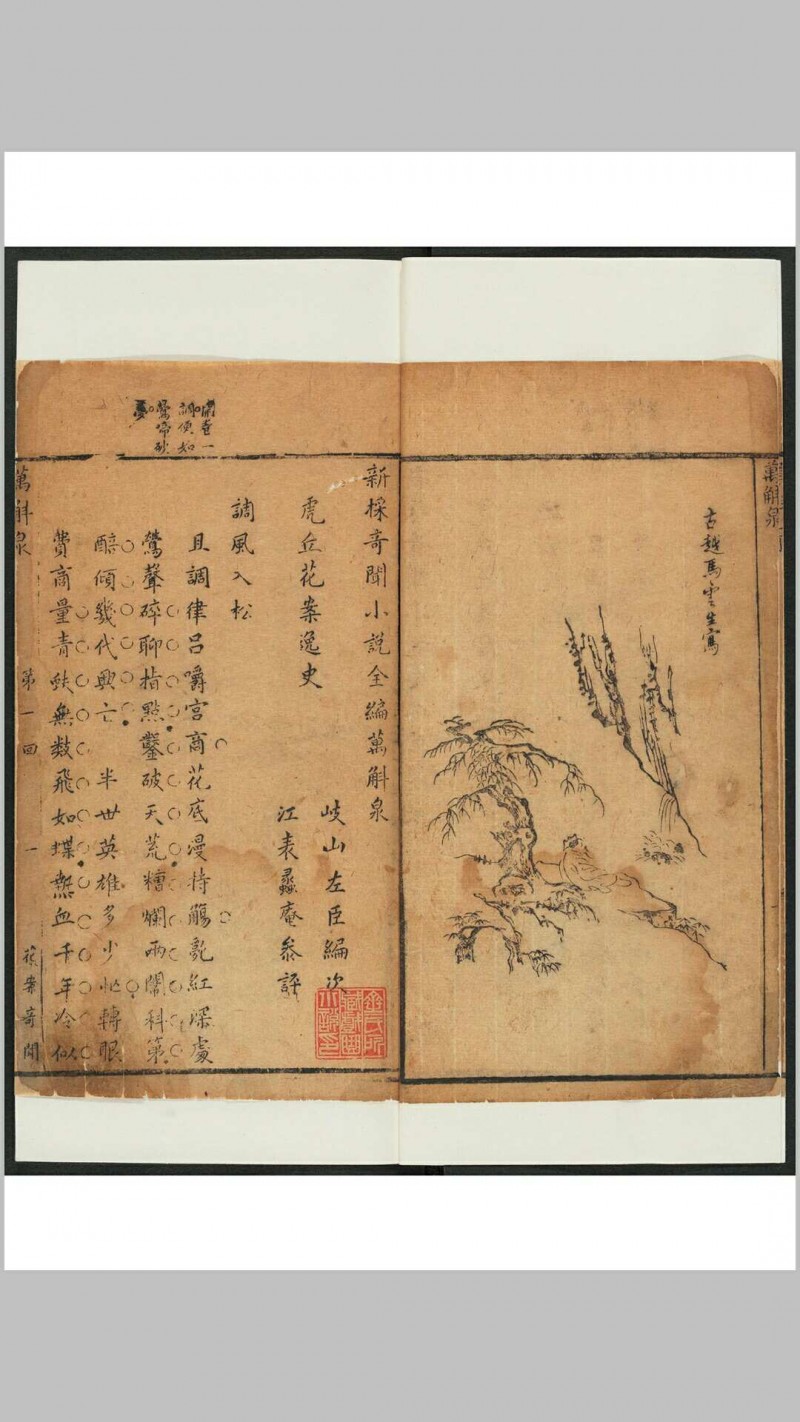 古越馬雲生寫
萬斛泉
新採奇聞小說全編萬斛泉
虎丘花案逸史
岐山左臣編次
江表蠡庵參評
調風入松
且調律呂嚼宮商花底漫持觴亂紅深處
鶯聲碎聊指點鑿破天荒糟爛兩闈科第
醅傾幾代興亡半世英雄多少忙轉眼
費商量青蚨無数飛如蝶熱血千年冷似
開卷一
調便如
鶯啼
萬斛泉
第一回
一
花案奇聞